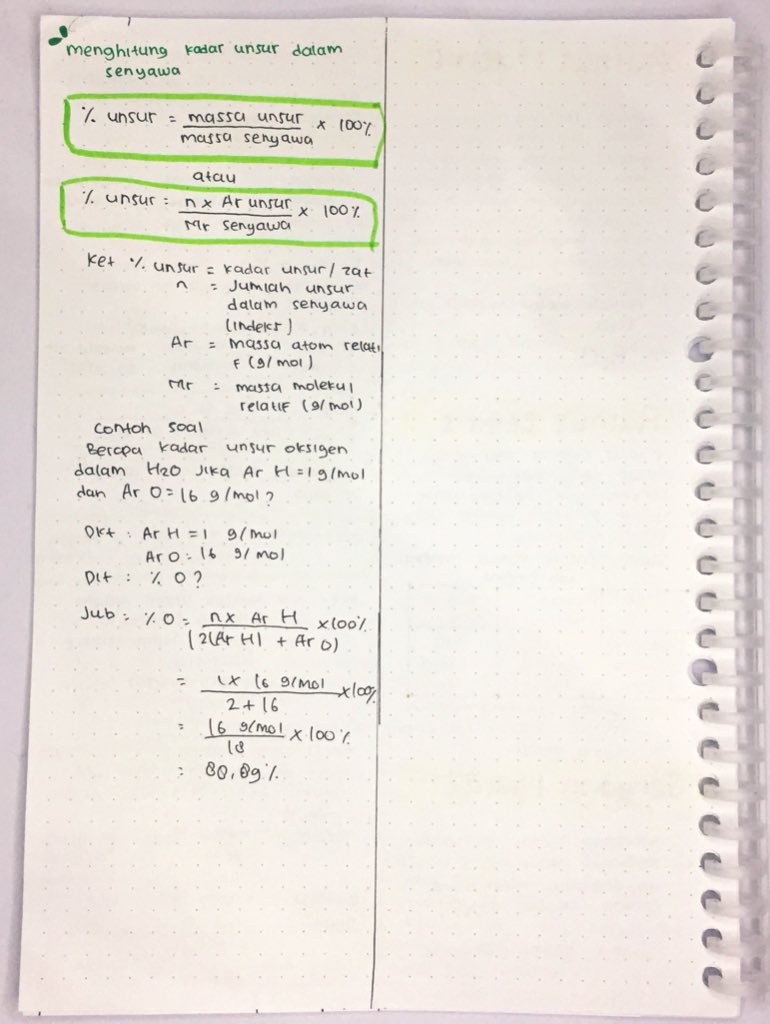 menghitung kadar unsur dalam
senyawa
% unsur = massa unsur / massa senyawa x 100%
atau
% unsur = n x Ar unsur / Mr senyawa x 100%
Ket % unsur = kadar unsur / zat
n = Jumlah unsur
dalam senyawa
(indeks)
Ar = massa atom relati
F (g/mol)
Mr = massa molekul
relatiF (g/mol)
Contoh soal
Berapa kadar unsur oksigen
dalam H2O Jika Ar H = 1 g/mol
dan Ar O = 16 g/mol ?
Dkt : Ar H = 1 g/mol
Ar O = 16 g/mol
Dit : % O ?
Jwb = % O = n x Ar H / (2(Ar H) + Ar O) x 100%
= 1 x 16 g/mol / 2 + 16 x 100%
= 16 g/mol / 18 x 100 %
= 88,89%